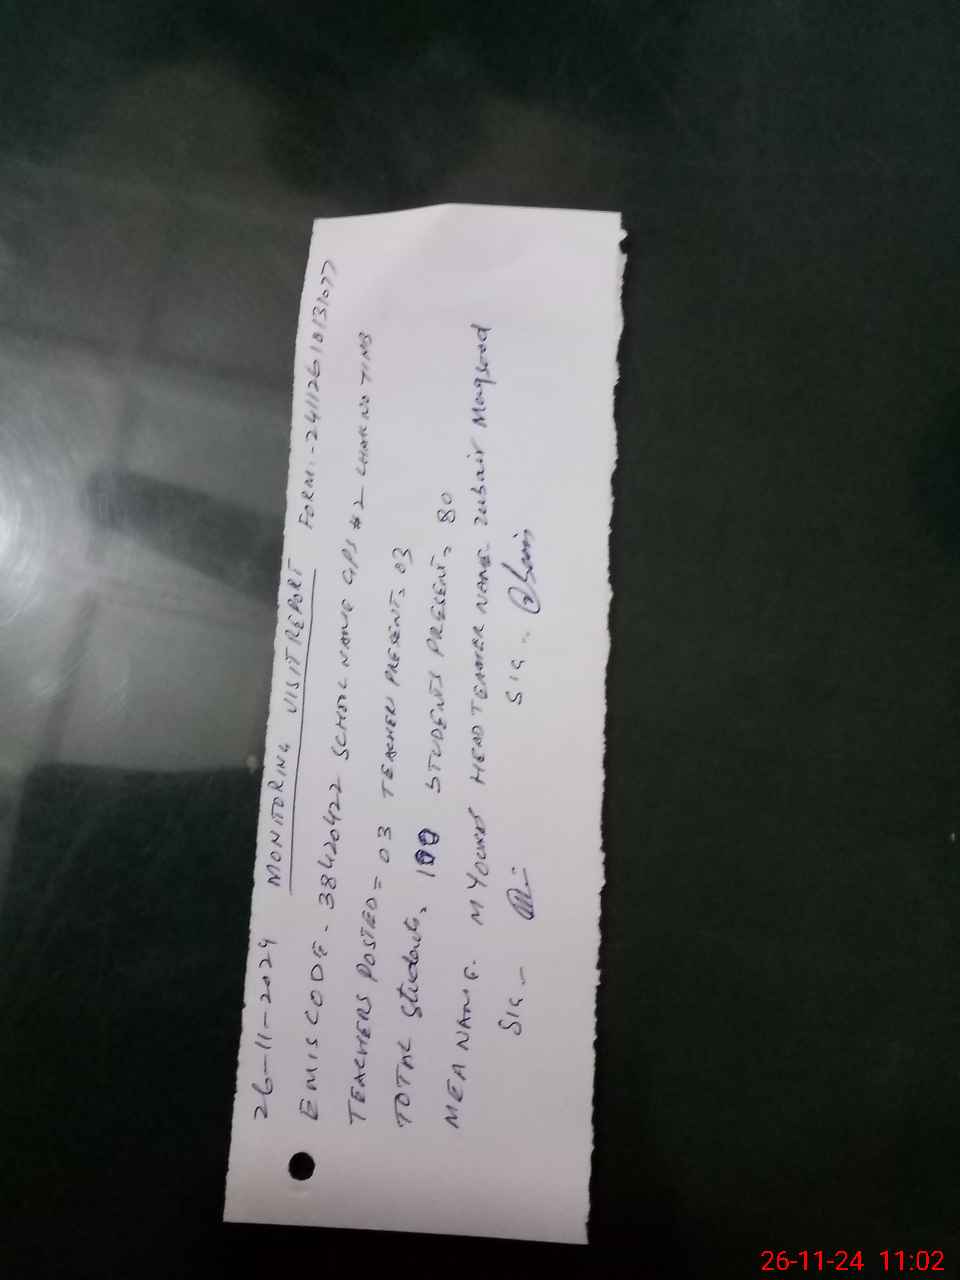 26-11-2024 MONITORING VISIT REPORT FORM:-24112610131077
EMIS CODE - 38420422 SCHOOL NAME GPS #2 CHAK NO 71NB
TEACHERS POSTED = 03 TEACHER PRESENT = 03
TOTAL Students = 100 STUDENTS PRESENT = 80
MEA NAME. M YOUNUS HEAD TEACHER NAME. Zubair Maqsood
SIG - SIG -
26-11-24 11:02